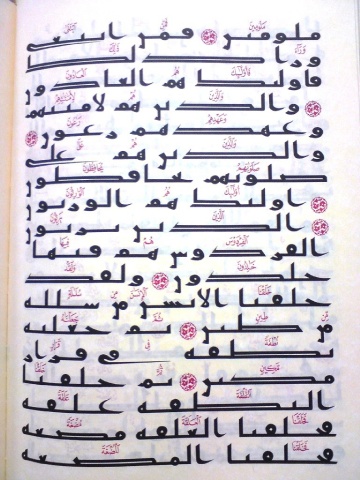 ملومين فمن ابتغى
ورا ذلك
فاولئك هم العادون
والذين هم لامنتهم
وعهدهم رعون
والذين هم على
صلوتهم يحافظون
اولئك هم الورثون
الذين يرثون
الفردوس هم فيها
خلدون ولقد
خلقنا الانسن من سللة
من طين ثم جعلنه
نطفة في قرار
مكين ثم خلقنا
النطفة علقة
فخلقنا العلقة مضغة
فخلقنا المضغة